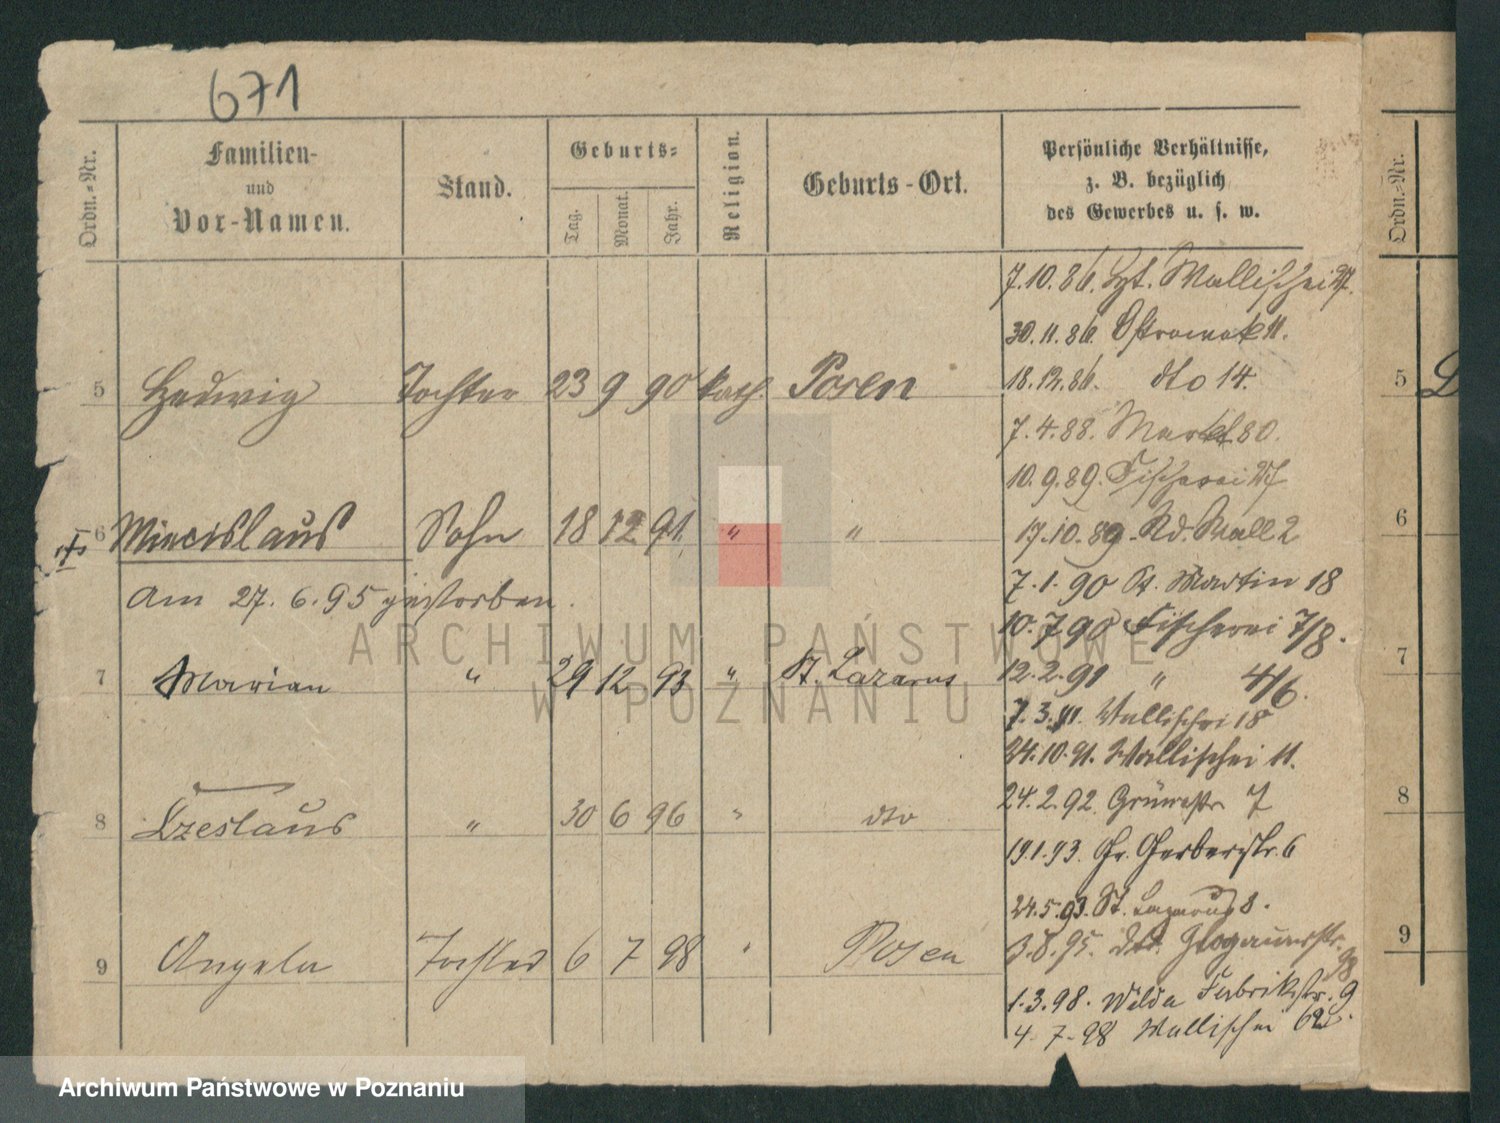 671
Ordn.-Nr.
Familien-
und
Vor-Namen.
Stand.
Geburts-
Tag.
Monat.
Jahr.
Religion.
Geburts-Ort.
Persönliche Verhältnisse,
z. B. bezüglich
des Gewerbes u. s. w.
Ordn.-Nr.
7.10.86. Wallischei
30.11.86. Ostrowek 11.
5 Hedwig Tochter 23 9 90 kath. Posen
18.12.86. dto 14.
5
7.4.88. Markt 80.
10.9.89. Fischerei
6 Miecislaus Sohn 18 12 91 " "
17.10.89. Wall 2
6
Am 27.6.95 gestorben.
7.1.90 St. Martin 18
10.7.90 Fischerei 7/8.
7 Marian " 29 12 93 " St. Lazarus
12.2.91 " 4/6.
7
7.3.91. Wallischei 18
24.10.91. Wallischei 11.
8 Czeslaus " 30 6 96 " dto
24.2.92. Grünestr 7
8
19.1.93. Gr. Gerberstr. 6
24.5.93. St. Lazarus 8.
9 Angela Tochter 6 7 98 " Posen
3.8.95. Glogauerstr. 98
9
1.3.98. Wilda Fabrikstr. 9
4.7.98 Wallischei
ARCHIWUM PAŃSTWOWE
W POZNANIU
Archiwum Państwowe w Poznaniu